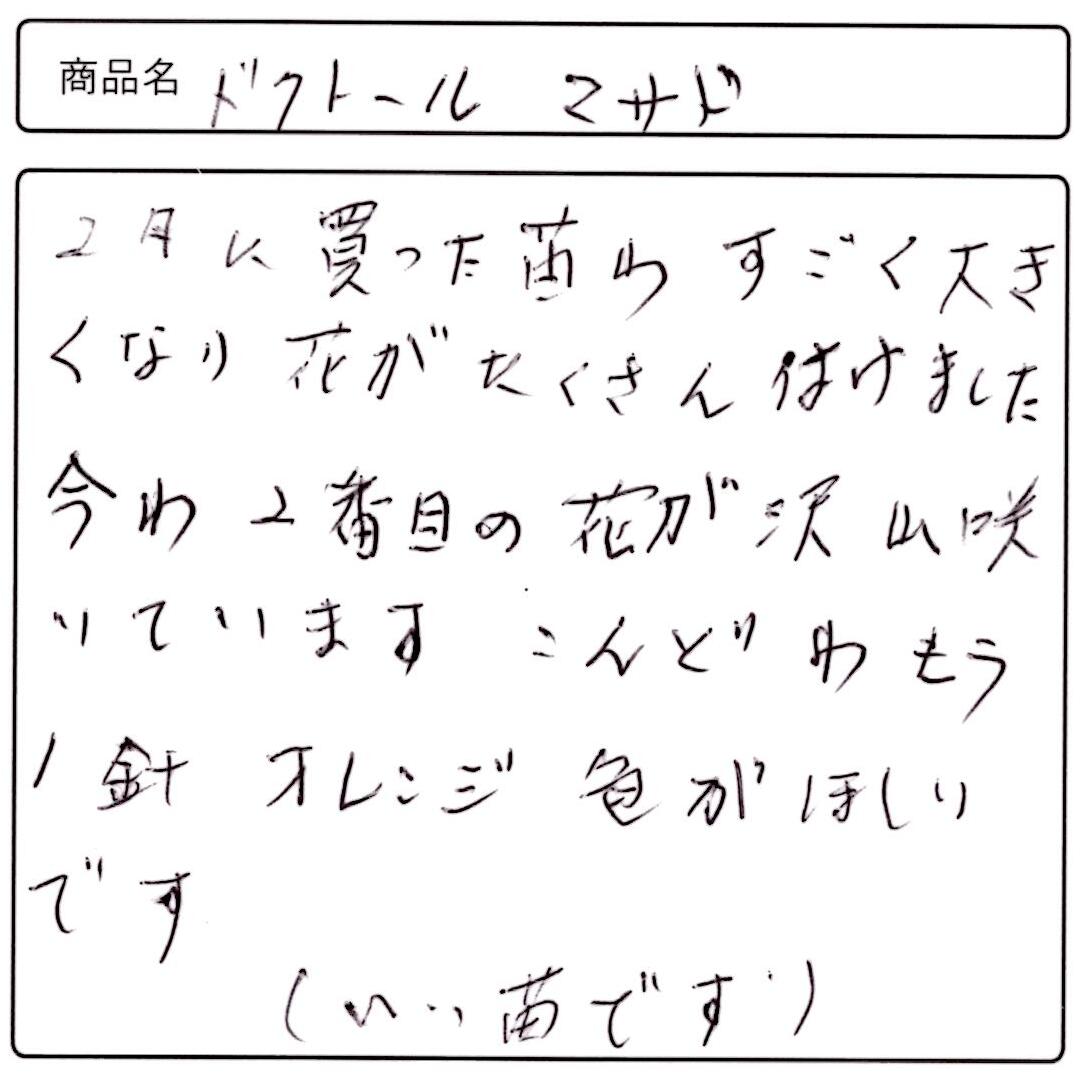 商品名 ドクトール マサド
2月に買った苗わ すごく大き
くなり 花がたくさん付けました
今わ 2番目の花が沢山咲
いています こんどわもう
1針 オレンジ色がほしい
です
(いい苗です)